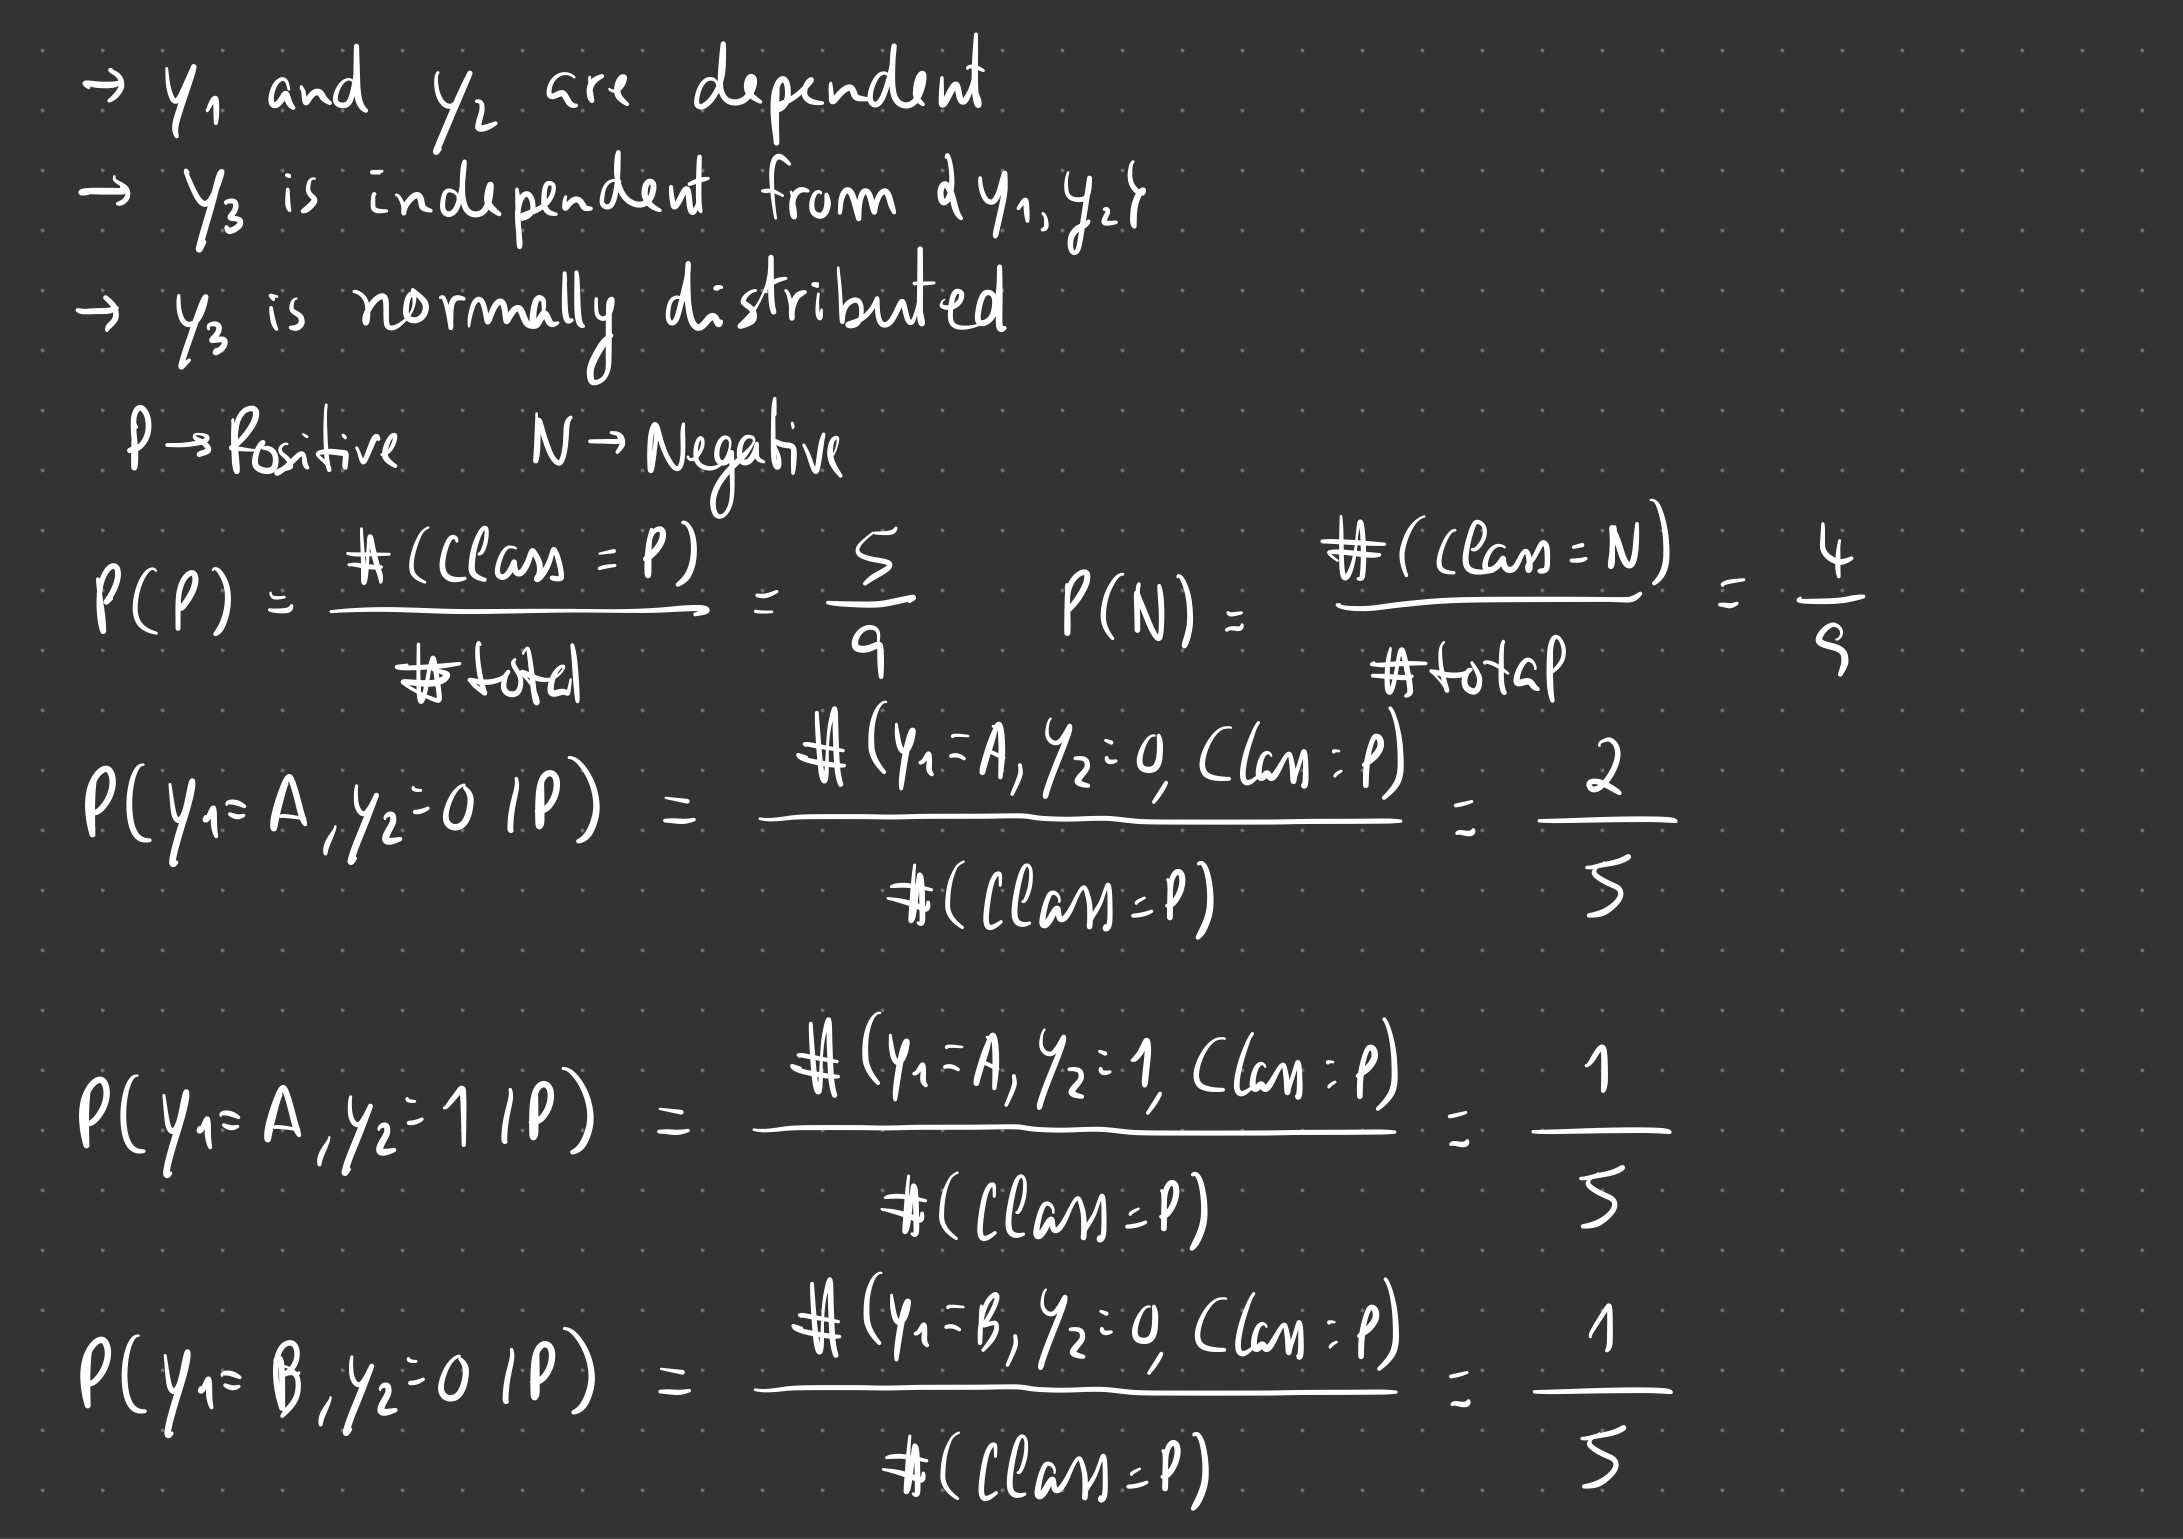 → y₁ and y₂ are dependent
→ y₃ is independent from {y₁, y₂}
→ y₃ is normally distributed
P → Positive N → Negative
P(P) = #(Class = P) / #total = 5/9 P(N) = #(Class = N) / #total = 4/9
P(y₁ = A, y₂ = 0 | P) = #(y₁ = A, y₂ = 0, Class = P) / #(Class = P) = 2/5
P(y₁ = A, y₂ = 1 | P) = #(y₁ = A, y₂ = 1, Class = P) / #(Class = P) = 1/5
P(y₁ = B, y₂ = 0 | P) = #(y₁ = B, y₂ = 0, Class = P) / #(Class = P) = 1/5